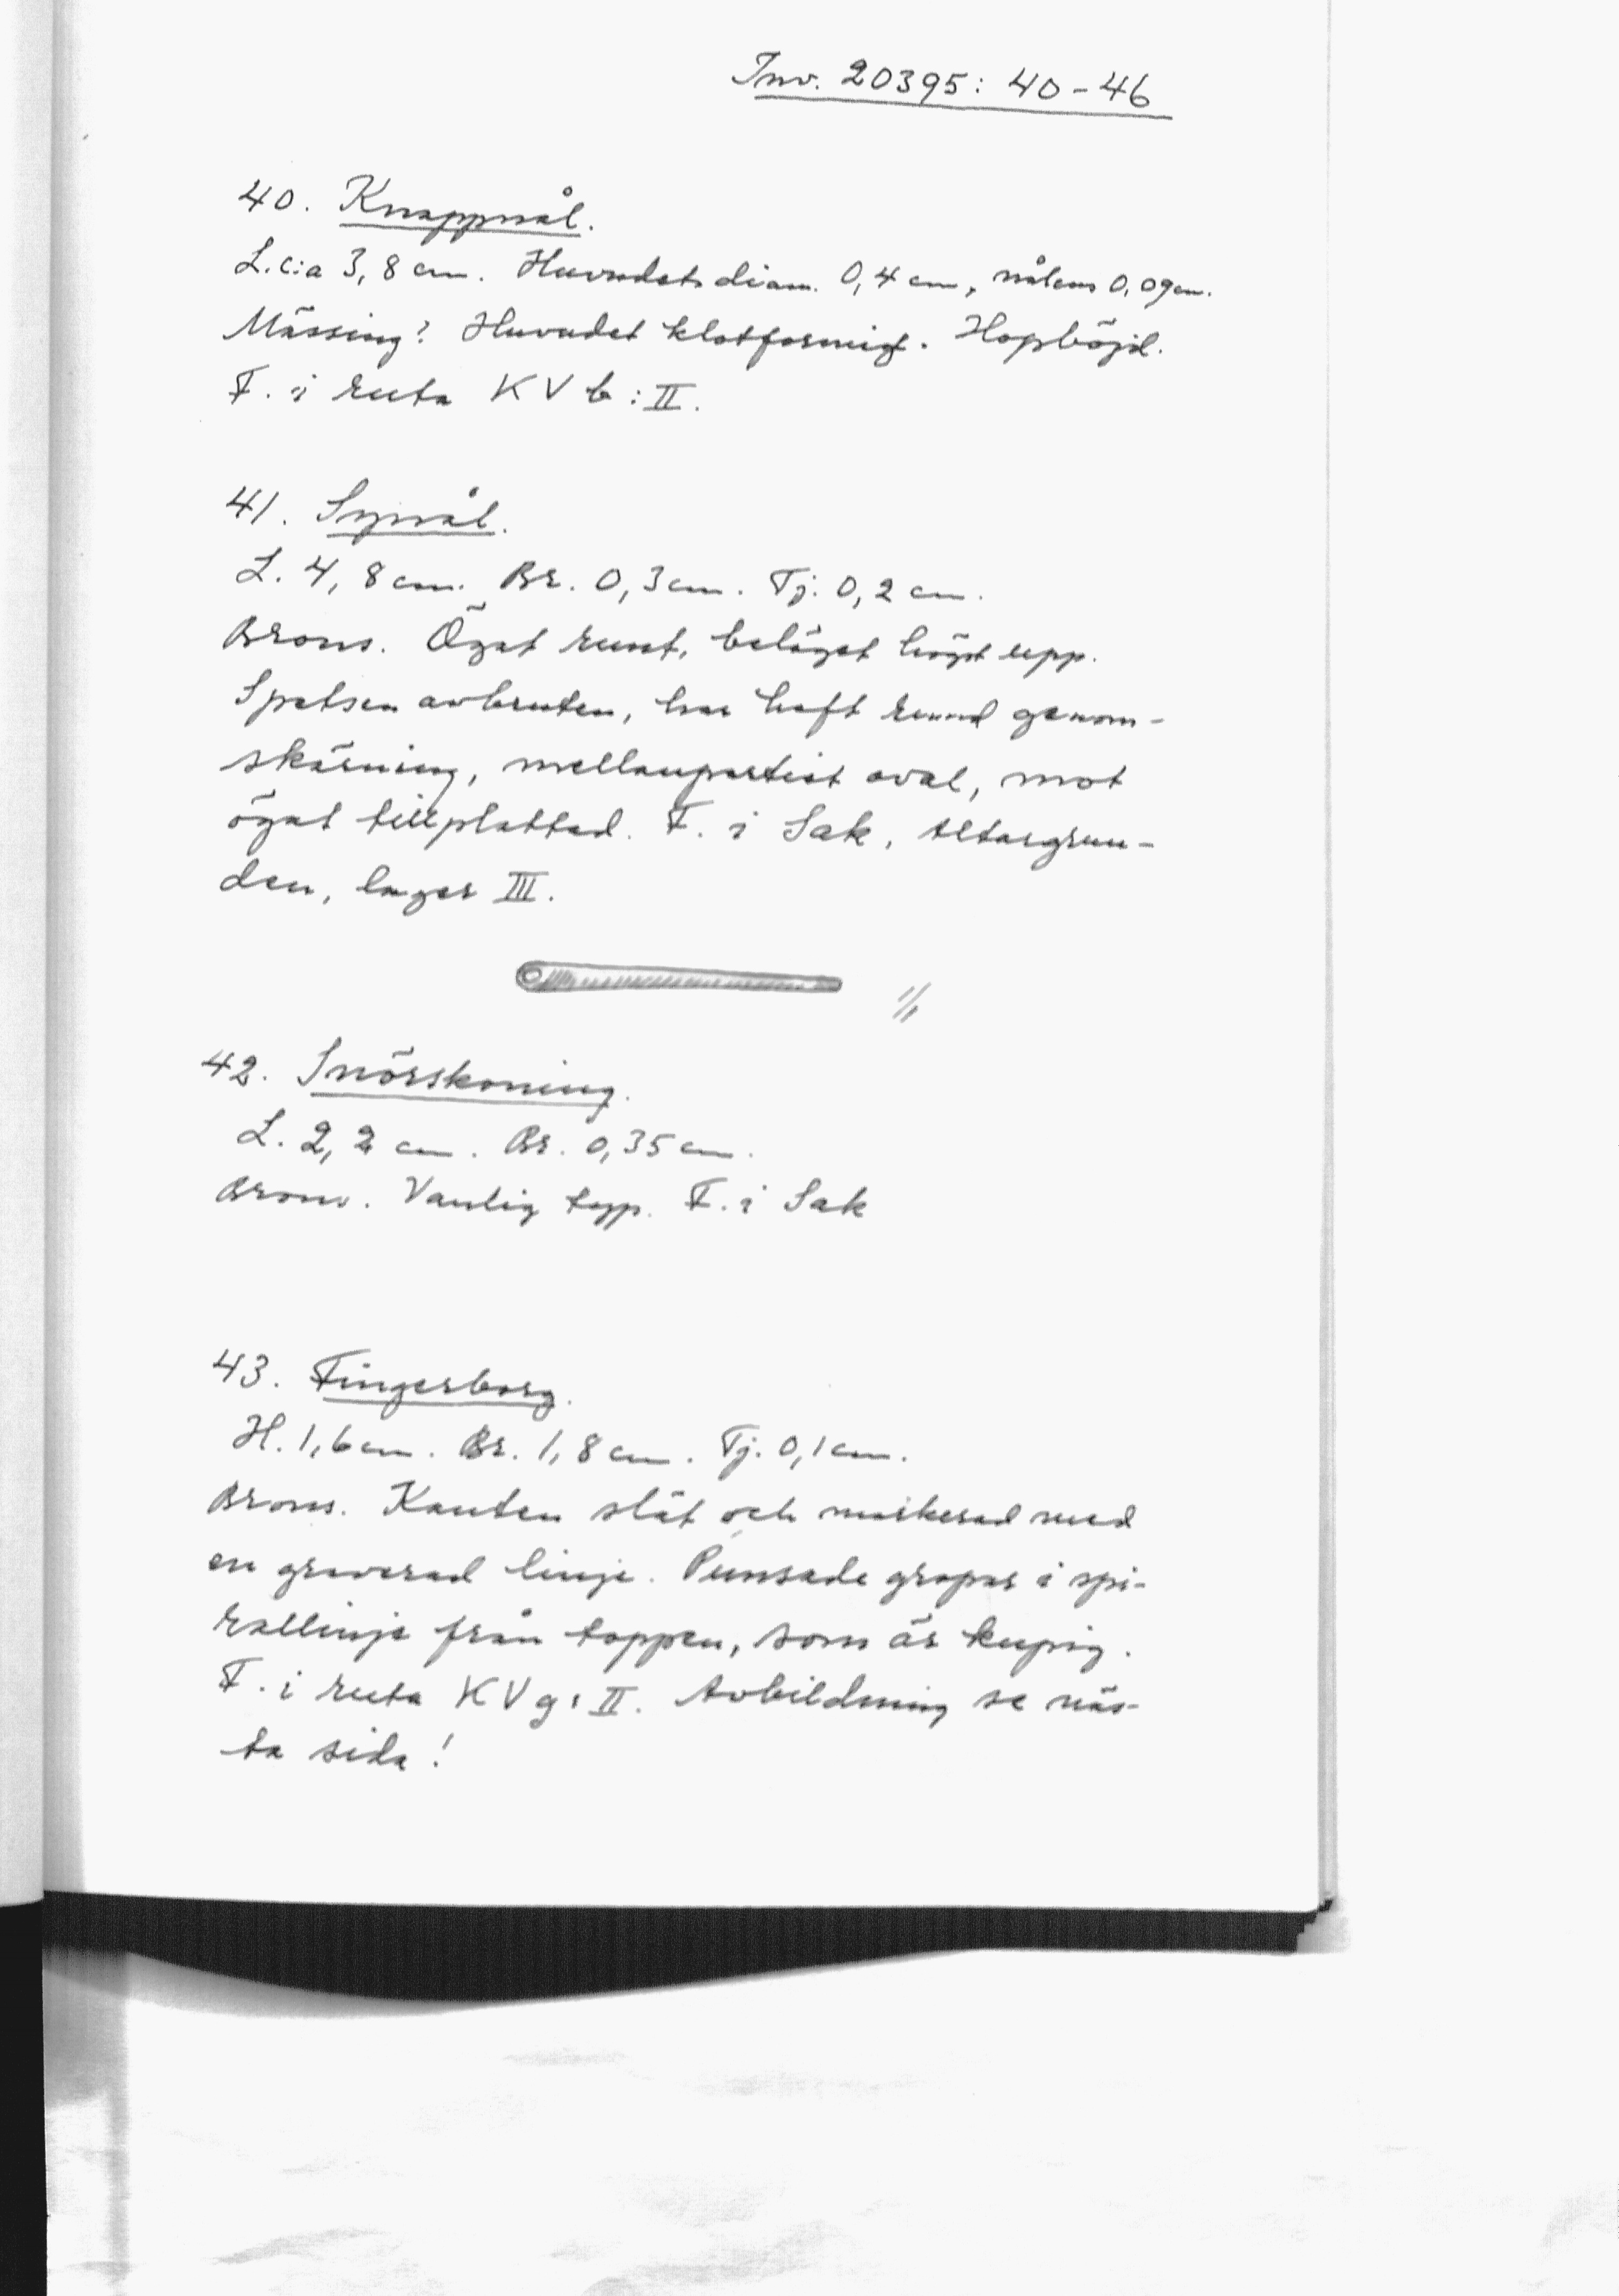 Inv. 20395: 40-46
40. Knappnål.
L. c:a 3,8 cm. Huvudets diam. 0,4 cm, nålens 0,09 cm.
Mässing? Huvudet klotformigt. Hopböjd.
F. i ruta KV b:II.
41. Synål.
L. 4,8 cm. Br. 0,3 cm. Tj. 0,2 cm.
Brons. Ögat runt, beläget högst upp.
Spetsen avbruten, har haft rund genom-
skärning, mellanpartiet oval, mot
ögat tillplattad. F. i Sak, Altargrun-
den, lager III.
1/1
42. Snörskoning.
L. 2,2 cm. Br. 0,35 cm.
Brons. Vanlig typ. F. i Sak
43. Fingerborg.
H. 1,6 cm. Br. 1,8 cm. Tj. 0,1 cm.
Brons. Kanten slät och markerad med
en graverad linje. Punsade gropar i spi-
rallinje från toppen, som är kupig.
F. i ruta KV g:II. Avbildning se näs-
ta sida!